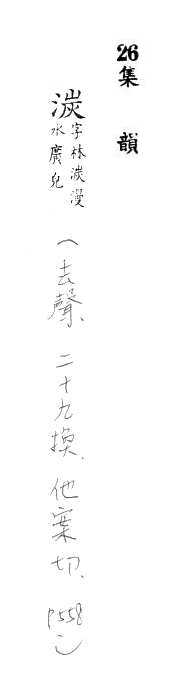 26集韻
湠字林湠漫
水廣皃
(去聲、二十九換、他案切、P558)